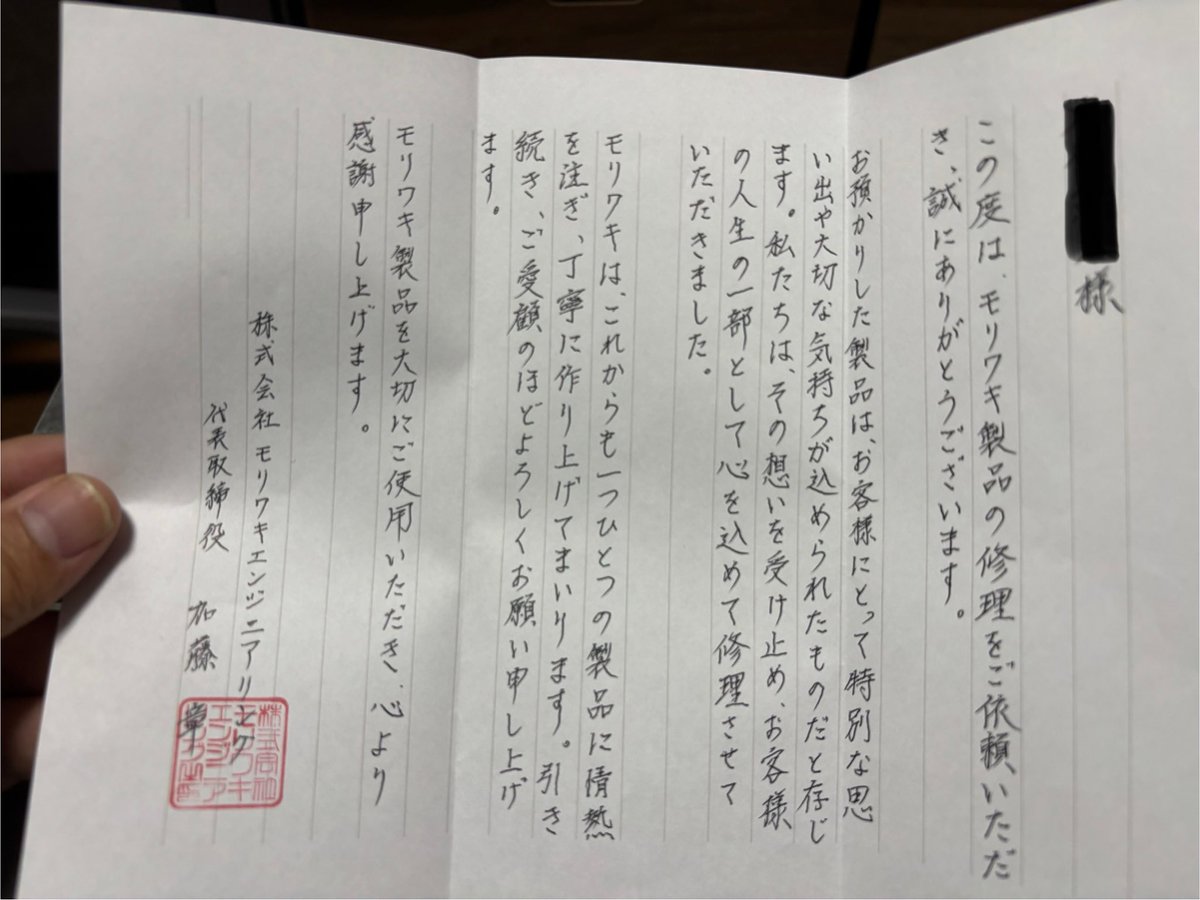 様
この度は、モリワキ製品の修理をご依頼いただ
き、誠にありがとうございます。
お預かりした製品は、お客様にとって特別な思
い出や大切な気持ちが込められたものだと存じ
ます。私たちは、その想いを受け止め、お客様
の人生の一部として心を込めて修理させて
いただきました。
モリワキは、これからも一つひとつの製品に情熱
を注ぎ、丁寧に作り上げてまいります。引き
続き、ご愛顧のほどよろしくお願い申し上げ
ます。
モリワキ製品を大切にご使用いただき、心より
感謝申し上げます。
株式会社 モリワキエンジニアリング
代表取締役 加藤 章
株式会社
モリワキ
エンジニア